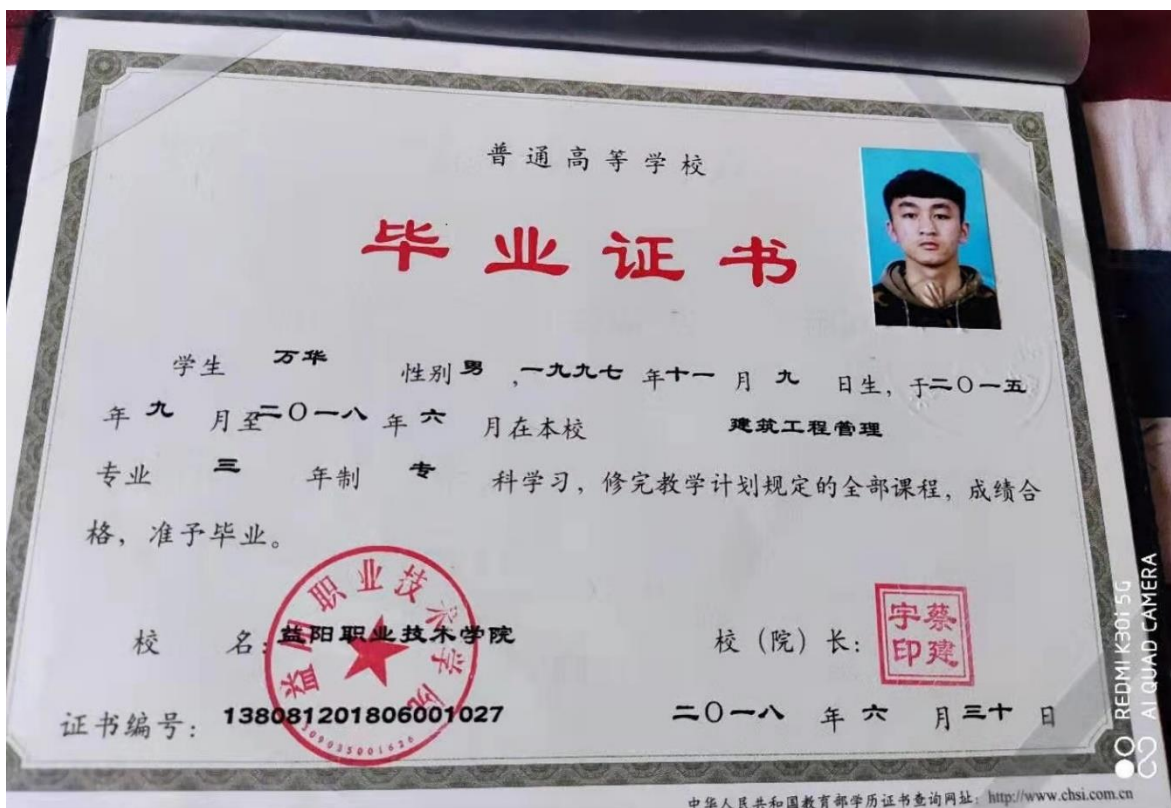 普通高等学校
毕业证书
学生 万华 性别 男 ,一九九七 年 十一 月 九 日生, 于二〇一五
年 九 月至二〇一八 年 六 月在本校 建筑工程管理
专业 三 年制 专 科学习, 修完教学计划规定的全部课程, 成绩合
格, 准予毕业。
益阳职业技术学院
校 名: 益阳职业技术学院
校(院)长:
蔡建宇印
证书编号: 138081201806001027
二〇一八 年 六 月 三十 日
中华人民共和国教育部学历证书查询网址: http://www.chsi.com.cn
REDMI K30i 5G
AI QUAD CAMERA